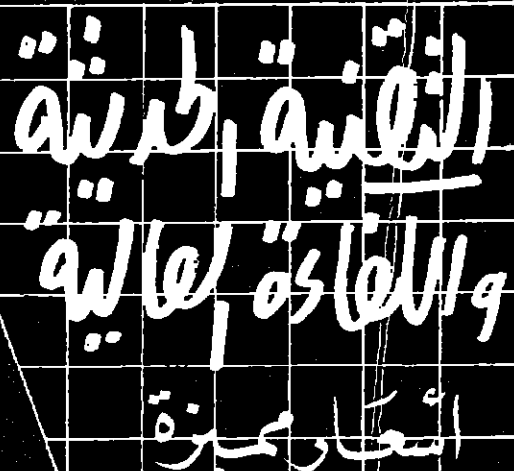 التقنية الحديثة
والكفاءة العالية
أسعار مميزة